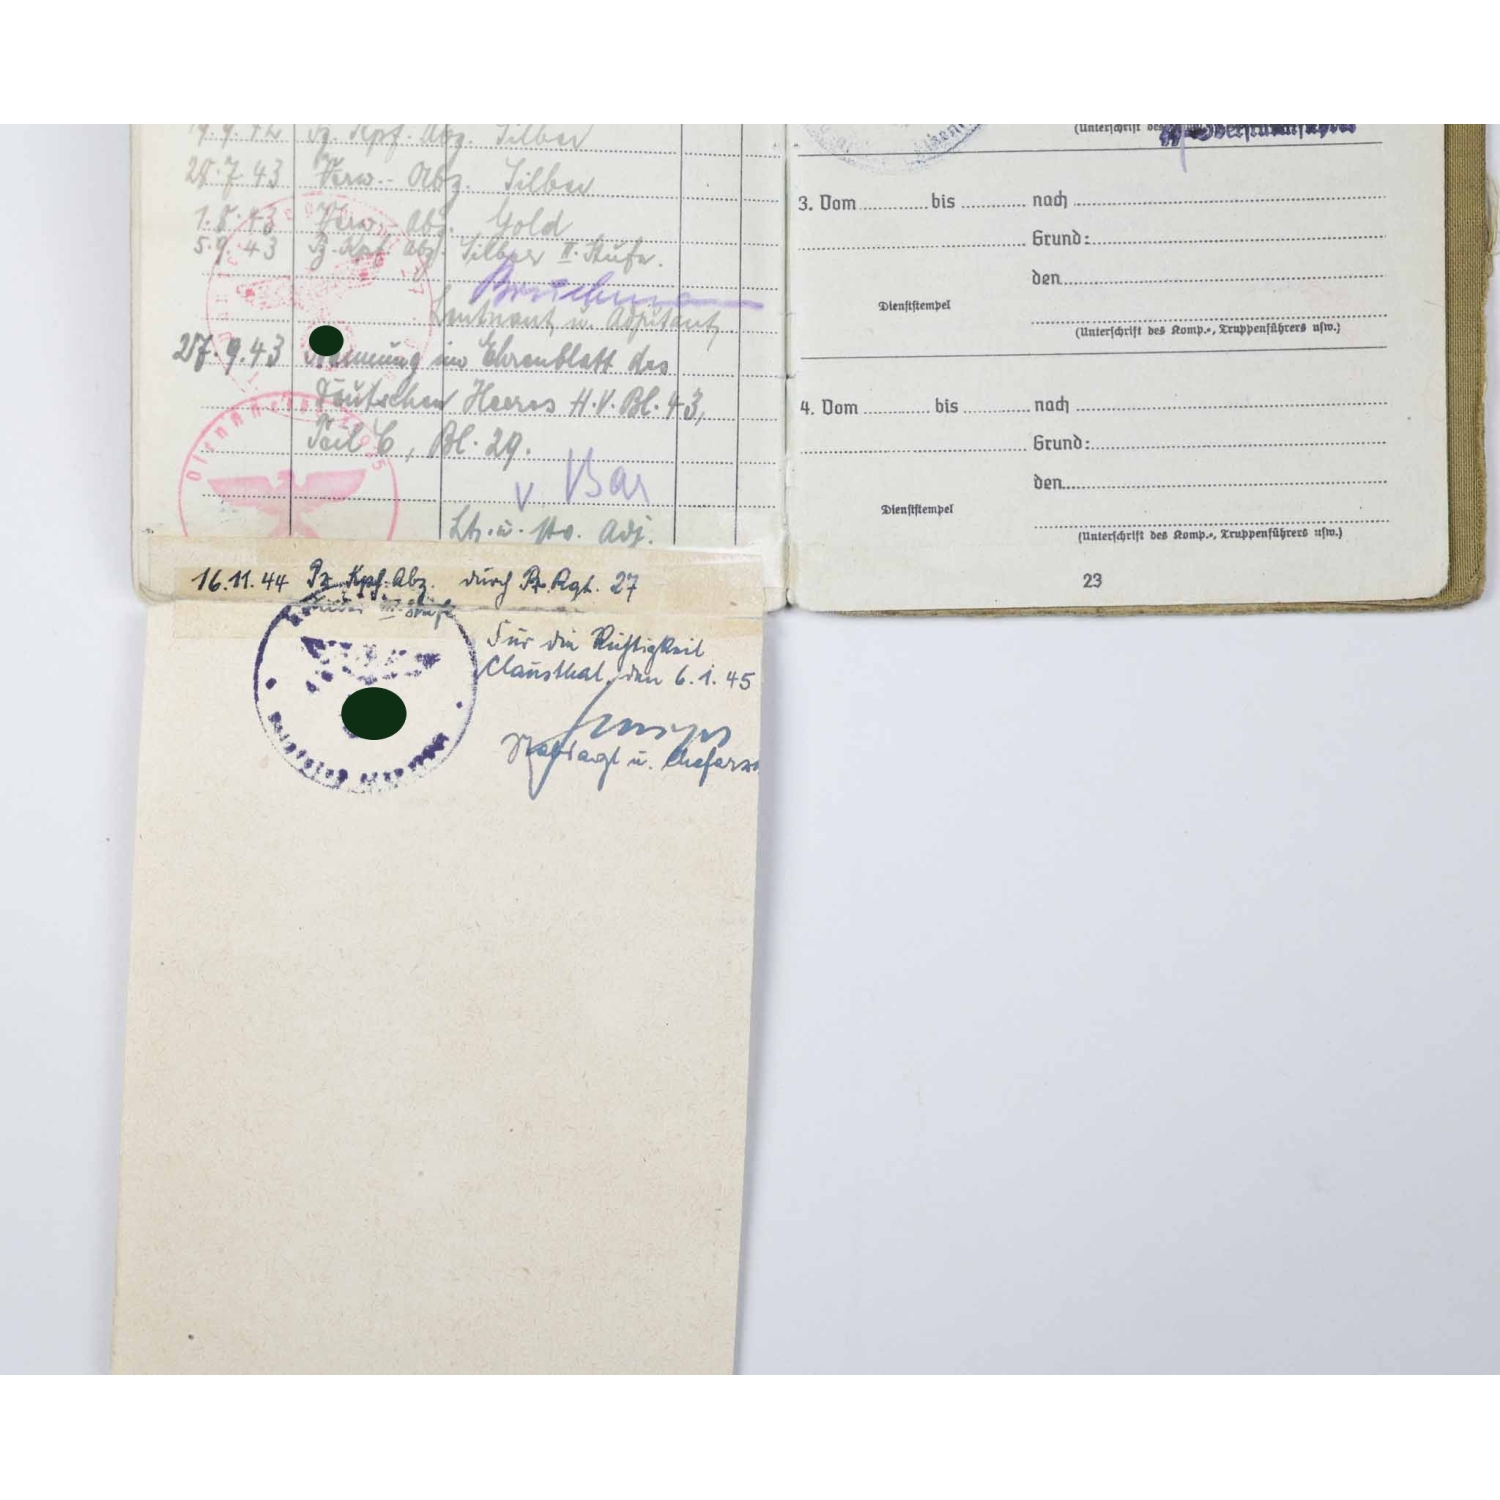 Pz. Kpf. Abz. Silber
28.7.43 Verw.- Abz. Silber
1.8.43 Verw. Abz. Gold
5.9.43 Pz. Kpf. Abz. Silber II. Stufe.
Leutnant u. Adjutant
27.9.43 Nennung im Ehrenblatt des
Deutschen Heeres H.V.Bl. 43,
Teil C, Bl. 29.
v
Lt. u. stv. Adj.
16.11.44 Pz. Kpf. Abz. durch Pz. Rgt. 27
III. Stufe
Für die Richtigkeit
Clausthal, den 6.1.45
u. Chefarzt
(Unterschrift des
3. Vom bis nach
Grund:
den
Dienststempel
(Unterschrift des Komp.-, Truppenführers usw.)
4. Vom bis nach
Grund:
den
Dienststempel
(Unterschrift des Komp.-, Truppenführers usw.)
23